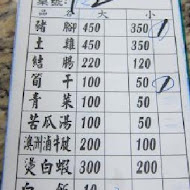 桌號:
品名 大 小
豬腳 450 350 1
土雞 450 350
結腸 220 120
筍干 100 50 1
青菜 100 50
苦瓜湯 100 50
澳洲滷牛腱 200 100
燙白蝦 300 200
白飯